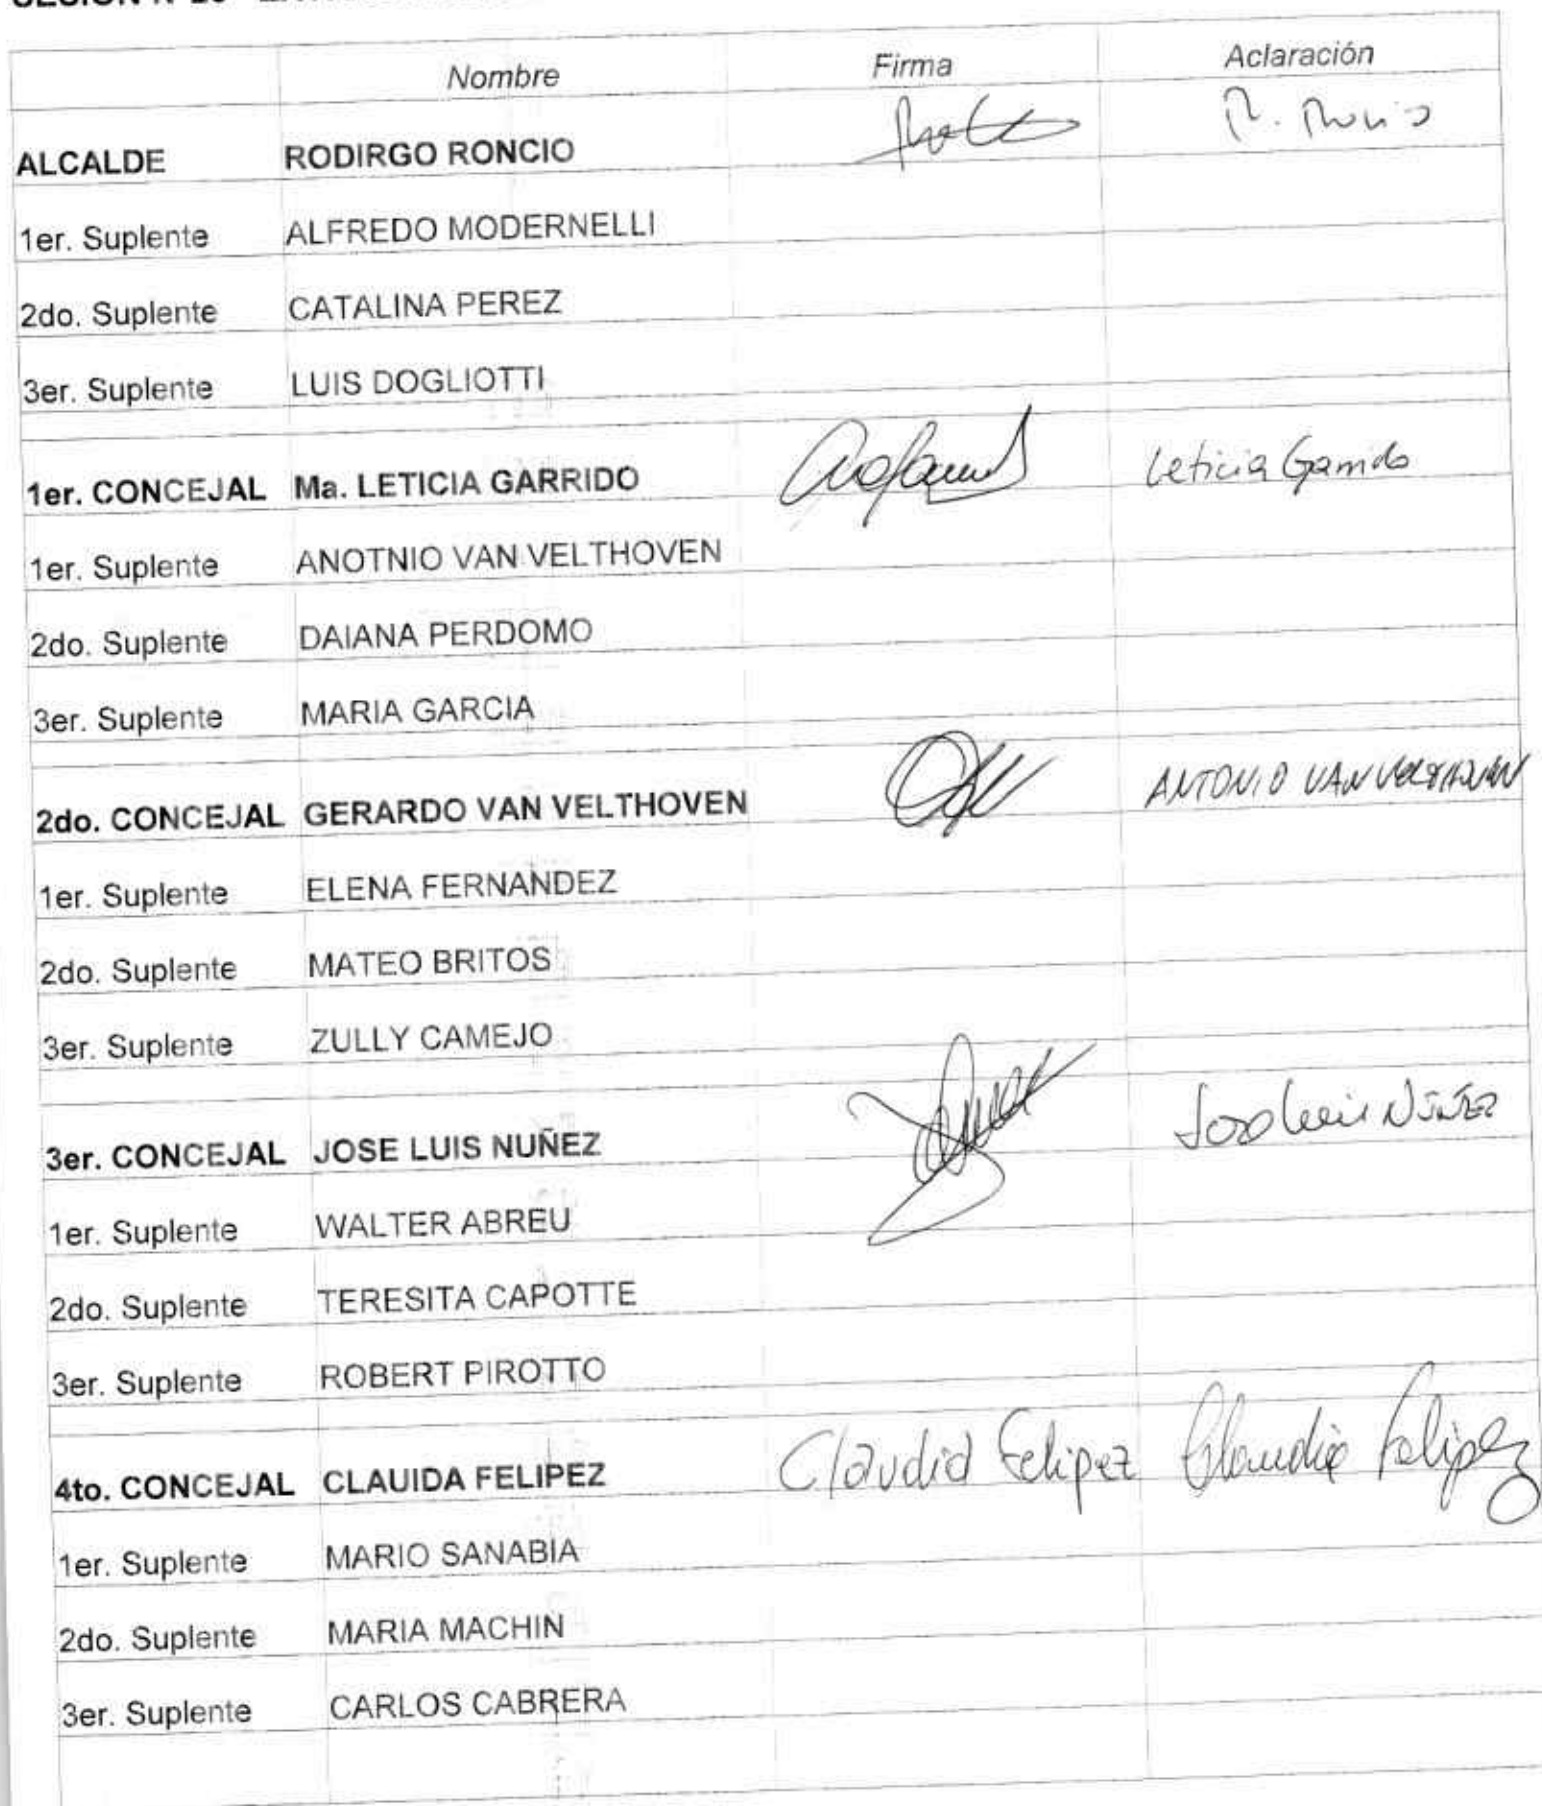 Nombre Firma Aclaración
ALCALDE RODIRGO RONCIO R. Roncio
1er. Suplente ALFREDO MODERNELLI
2do. Suplente CATALINA PEREZ
3er. Suplente LUIS DOGLIOTTI
1er. CONCEJAL Ma. LETICIA GARRIDO Leticia Garrido
1er. Suplente ANOTNIO VAN VELTHOVEN
2do. Suplente DAIANA PERDOMO
3er. Suplente MARIA GARCIA
2do. CONCEJAL GERARDO VAN VELTHOVEN ANTONIO VAN VELTHOVEN
1er. Suplente ELENA FERNANDEZ
2do. Suplente MATEO BRITOS
3er. Suplente ZULLY CAMEJO
3er. CONCEJAL JOSE LUIS NUÑEZ Jose Luis NúÑEZ
1er. Suplente WALTER ABREU
2do. Suplente TERESITA CAPOTTE
3er. Suplente ROBERT PIROTTO
4to. CONCEJAL CLAUIDA FELIPEZ Claudia Felipez Claudia Felipez
1er. Suplente MARIO SANABIA
2do. Suplente MARIA MACHIN
3er. Suplente CARLOS CABRERA